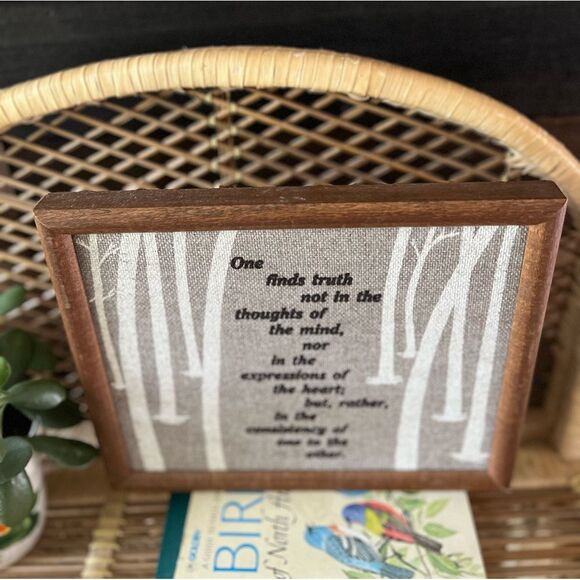 One
finds truth
not in the
thoughts of
the mind,
nor
in the
expressions of
the heart;
but, rather,
in the
consistency of
one to the
other.
GOLDEN
A GUIDE
BIR
of North